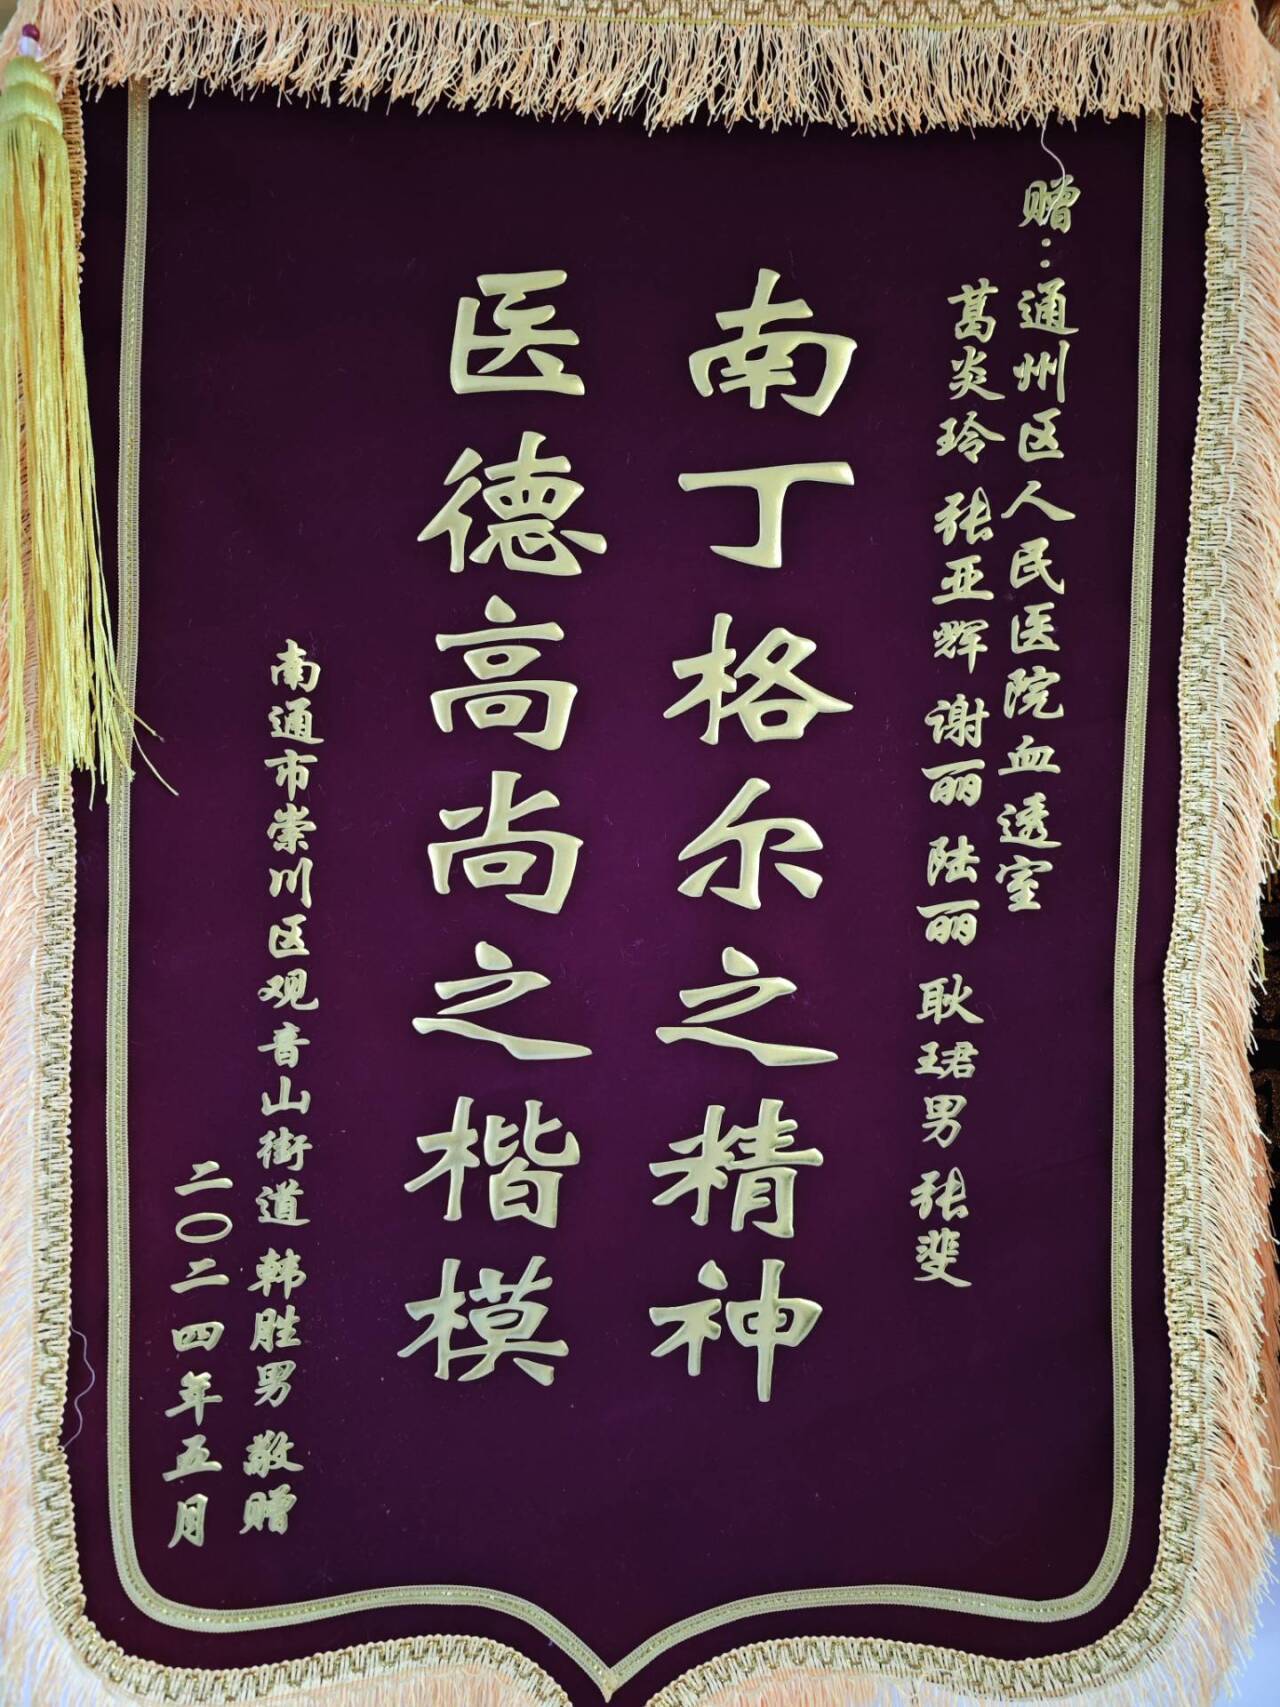 赠：通州区人民医院血透室
葛炎玲 张亚辉 谢丽 陆丽 耿珺男 张斐
南丁格尔之精神
医德高尚之楷模
南通市崇川区观音山街道 韩胜男 敬赠
二〇二四年五月